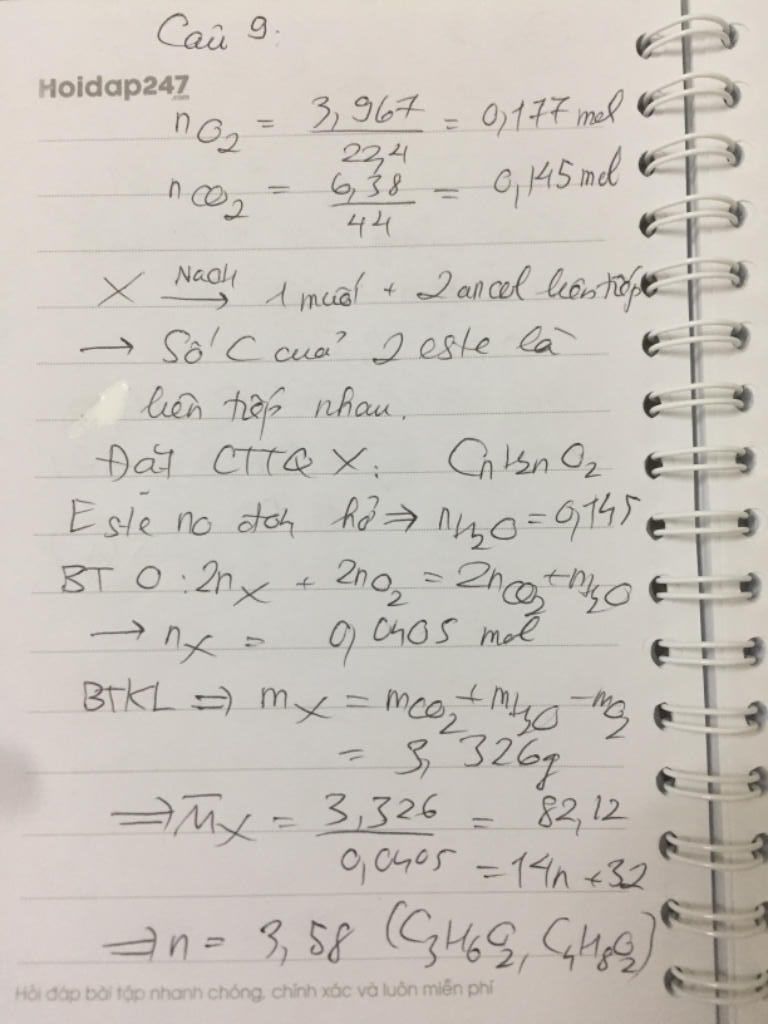 Câu 9:
Hoidap247
.com
nO2 = 3,967/22,4 = 0,177 mol
nCO2 = 6,38/44 = 0,145 mol
X NaOH→ 1 muối + 2 ancol liên tiếp
→ Số C của 2 este là
liên tiếp nhau.
Đặt CTTQ X: CnH2nO2
Este no đơn hở ⇒ nH2O = 0,145
BT O: 2nX + 2nO2 = 2nCO2 + nH2O
→ nX = 0,0405 mol
BTKL ⇒ mX = mCO2 + mH2O - mO2
= 3,326g
⇒ M̅X = 3,326/0,0405 = 82,12
= 14n + 32
⇒ n = 3,58 (C3H6O2, C4H8O2)
Hỏi đáp bài tập nhanh chóng, chính xác và luôn miễn phí